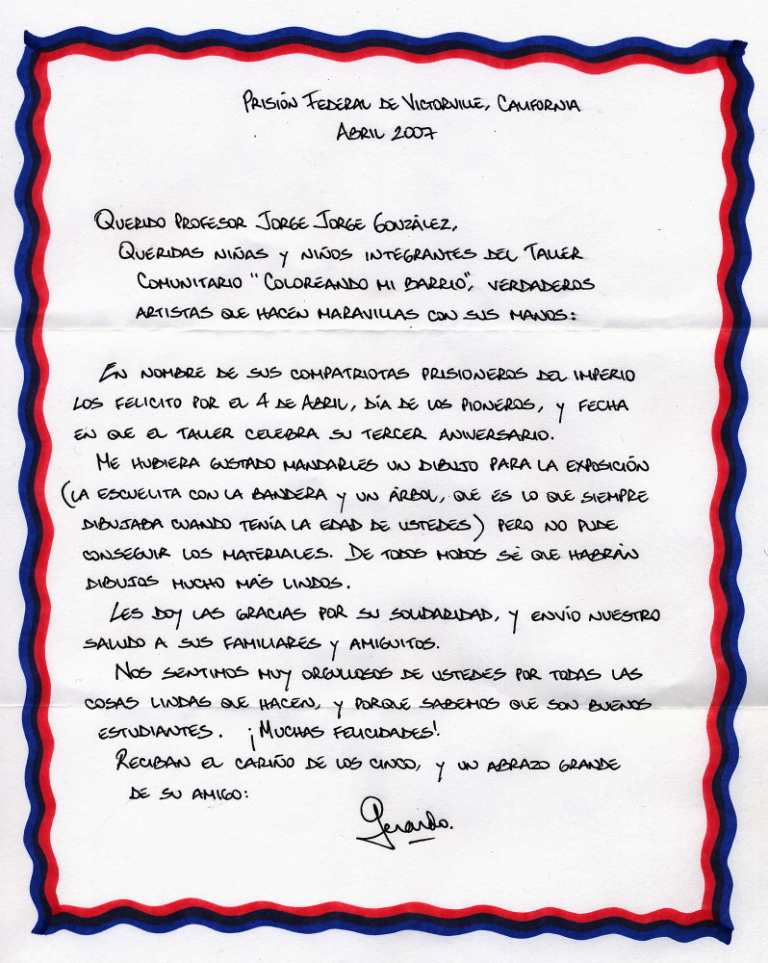 PRISIÓN FEDERAL DE VICTORVILLE, CALIFORNIA
ABRIL 2007
QUERIDO PROFESOR JORGE JORGE GONZÁLEZ,
QUERIDAS NIÑAS Y NIÑOS INTEGRANTES DEL TALLER
COMUNITARIO "COLOREANDO MI BARRIO", VERDADEROS
ARTISTAS QUE HACEN MARAVILLAS CON SUS MANOS:
EN NOMBRE DE SUS COMPATRIOTAS PRISIONEROS DEL IMPERIO
LOS FELICITO POR EL 4 DE ABRIL, DÍA DE LOS PIONEROS, Y FECHA
EN QUE EL TALLER CELEBRA SU TERCER ANIVERSARIO.
ME HUBIERA GUSTADO MANDARLES UN DIBUJO PARA LA EXPOSICIÓN
(LA ESCUELITA CON LA BANDERA Y UN ÁRBOL, QUE ES LO QUE SIEMPRE
DIBUJABA CUANDO TENÍA LA EDAD DE USTEDES) PERO NO PUDE
CONSEGUIR LOS MATERIALES. DE TODOS MODOS SÉ QUE HABRÁN
DIBUJOS MUCHO MÁS LINDOS.
LES DOY LAS GRACIAS POR SU SOLIDARIDAD, Y ENVÍO NUESTRO
SALUDO A SUS FAMILIARES Y AMIGUITOS.
NOS SENTIMOS MUY ORGULLOSOS DE USTEDES POR TODAS LAS
COSAS LINDAS QUE HACEN, Y PORQUE SABEMOS QUE SON BUENOS
ESTUDIANTES. ¡MUCHAS FELICIDADES!
RECIBAN EL CARIÑO DE LOS CINCO, Y UN ABRAZO GRANDE
DE SU AMIGO:
Gerardo.